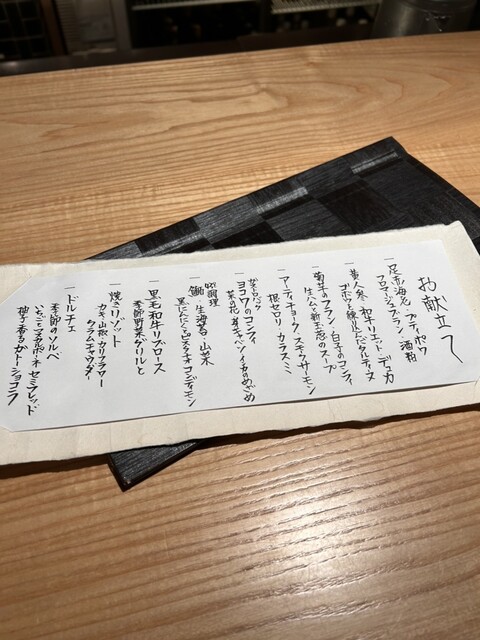 お献立て
一 足赤海老・プティポワ
フロマージュブラン・酒粕
一 黄人参・和牛リエット・デュカ
ゴボウを練り込んだタルティーヌ
一 菊芋のフラン・白子のコンフィ
生ハムと新玉葱のスープ
一 アーティチョーク・スモークサーモン
根セロリ・カラスミ
ヨコワのコンフィ
菜の花・芽キャベツ・イカのめざめ
一 魚料理
鰤・生海苔・山菜
黒にんにくとピスタチオ コンディモン
一 黒毛和牛リブロース
季節野菜グリルと
一 焼きリゾット
カキ・山椒・カリフラワー
クラムチャウダー
一 ドルチェ
季節のソルベ
いちごとマスカルポーネ セミフレッド
柚子香るガトーショコラ